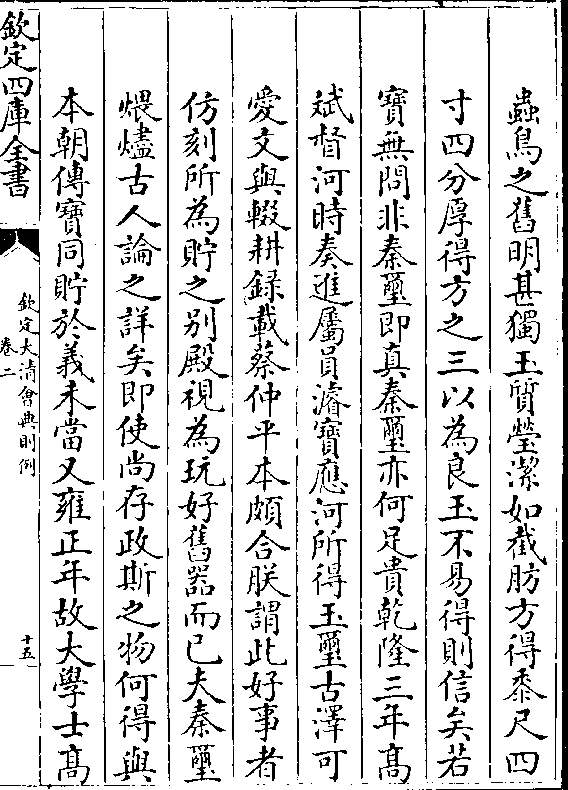 蟲鳥之舊明甚獨玉質瑩潔如截肪方得黍尺四
寸四分厚得方之三以為良玉不易得則信矣若
寶無問非秦璽即真秦璽亦何足貴乾隆三年髙
斌督河時奏進屬員濬寶應河所得玉璽古澤可
愛文與輟耕錄載蔡仲平本頗合朕謂此好事者
仿刻所為貯之别殿視為玩好舊器而已夫秦璽
煨燼古人論之詳矣即使尚存政斯之物何得與
本朝傳寶同貯於義未當又雍正年故大學士髙
欽定四庫全書
欽定大清會典則例
卷二
十五